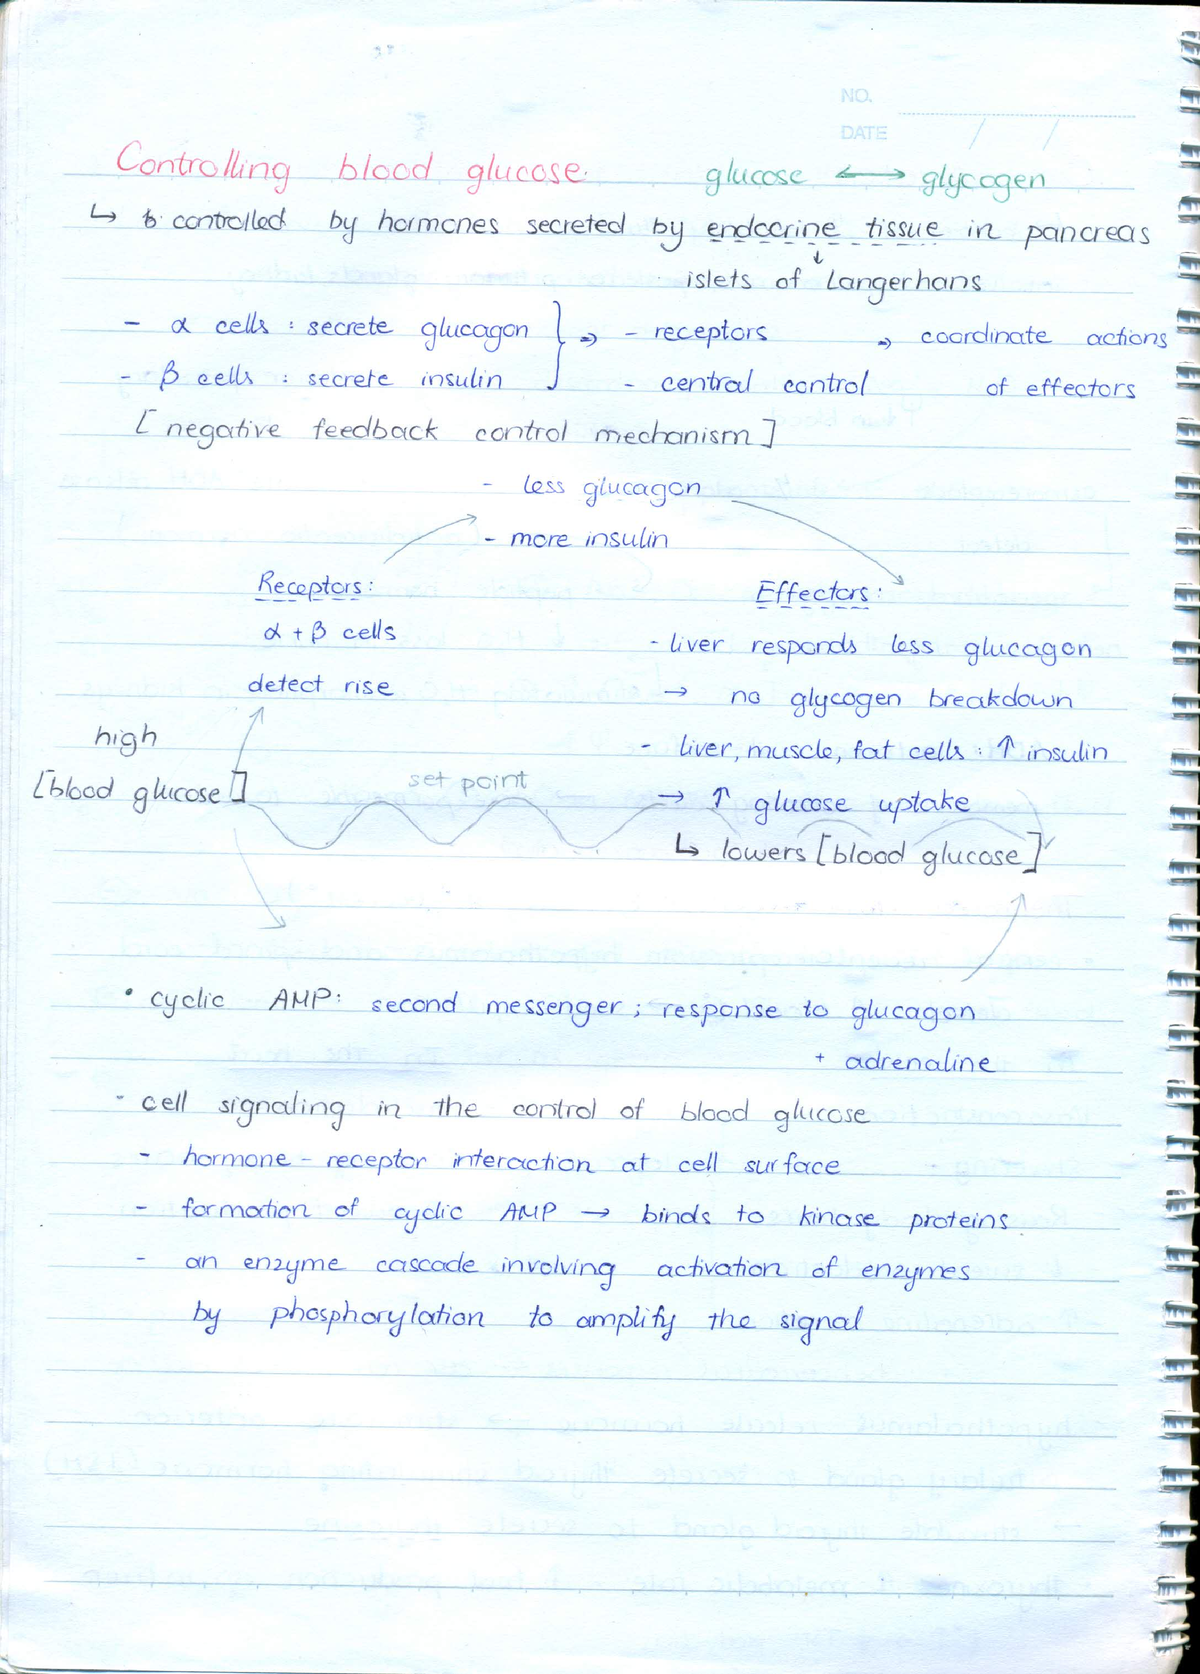 NO.
DATE / /
Controlling blood glucose: glucose ⟷ glycogen
↳ controlled by hormones secreted by endocrine tissue in pancreas
↓
islets of Langerhans
- α cells : secrete glucagon } → - receptors → coordinate actions
- β cells : secrete insulin - central control of effectors
[negative feedback control mechanism]
- less glucagon
- more insulin
Receptors:
α + β cells
detect rise
Effectors:
- liver responds less glucagon
→ no glycogen breakdown
- liver, muscle, fat cells : ↑ insulin
→ ↑ glucose uptake
↳ lowers [blood glucose]
high
[blood glucose]
set point
• cyclic AMP: second messenger ; response to glucagon
+ adrenaline
· cell signaling in the control of blood glucose
- hormone - receptor interaction at cell surface
- formation of cyclic AMP → binds to kinase proteins.
- an enzyme cascade involving activation of enzymes
by phosphorylation to amplify the signal